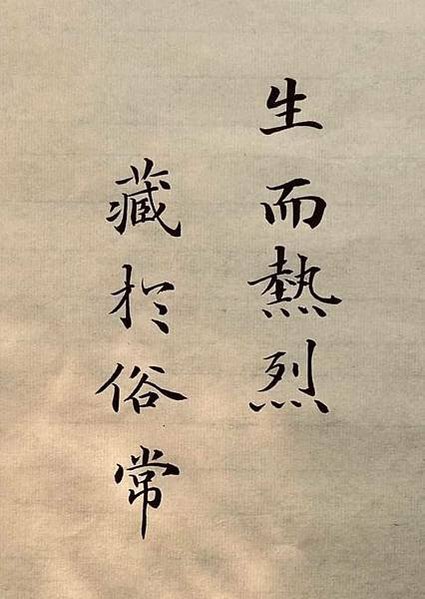 生而熱烈
藏於俗常